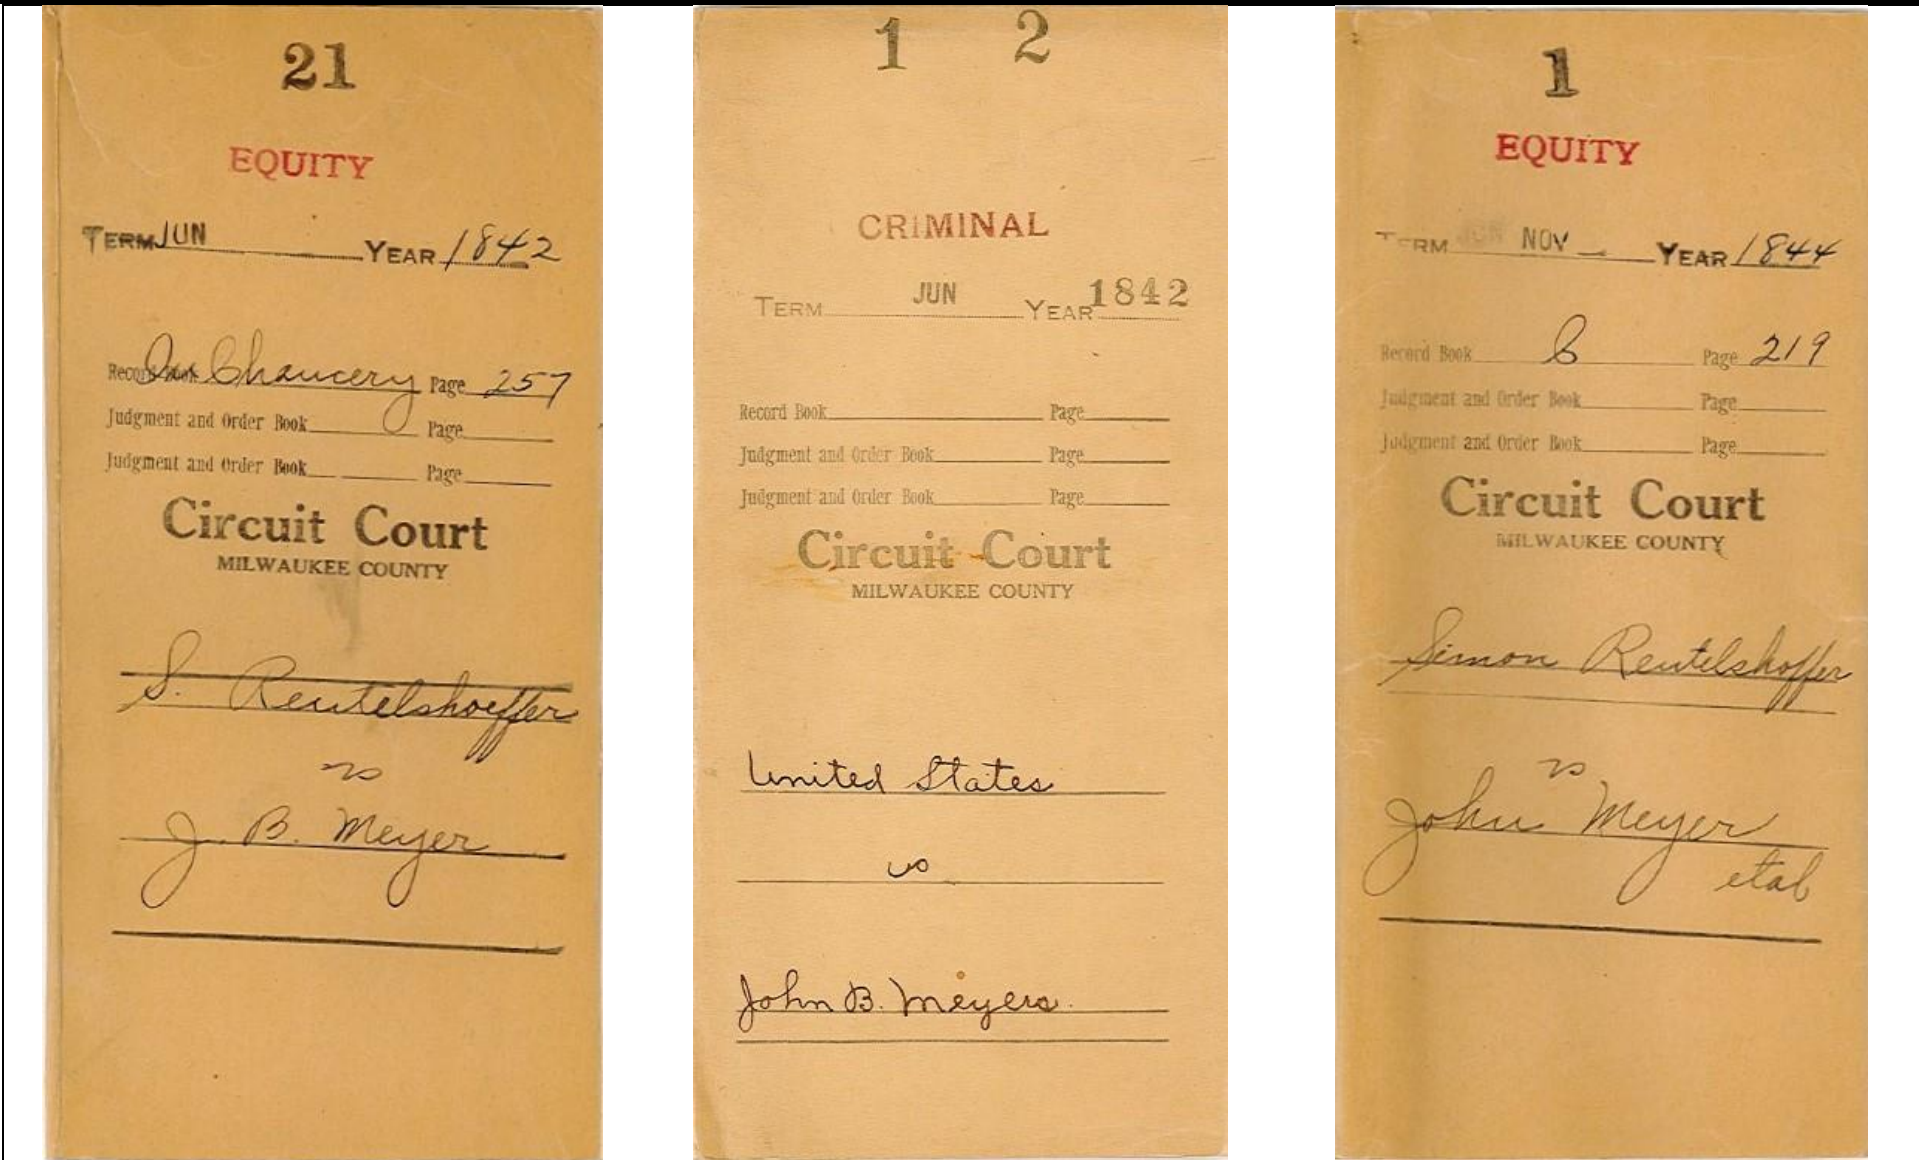 21
EQUITY
TERM JUN YEAR 1842
Record Book In Chancery Page 257
Judgment and Order Book Page
Judgment and Order Book Page
Circuit Court
MILWAUKEE COUNTY
S. Reutelshoeffer
vs
J. B. Meyer
1 2
CRIMINAL
TERM JUN YEAR 1842
Record Book Page
Judgment and Order Book Page
Judgment and Order Book Page
Circuit Court
MILWAUKEE COUNTY
United States
vs
John B. Meyers.
1
EQUITY
TERM JUN NOV YEAR 1844
Record Book Page 219
Judgment and Order Book Page
Judgment and Order Book Page
Circuit Court
MILWAUKEE COUNTY
Simon Reutelshoffer
vs
John Meyer
etal